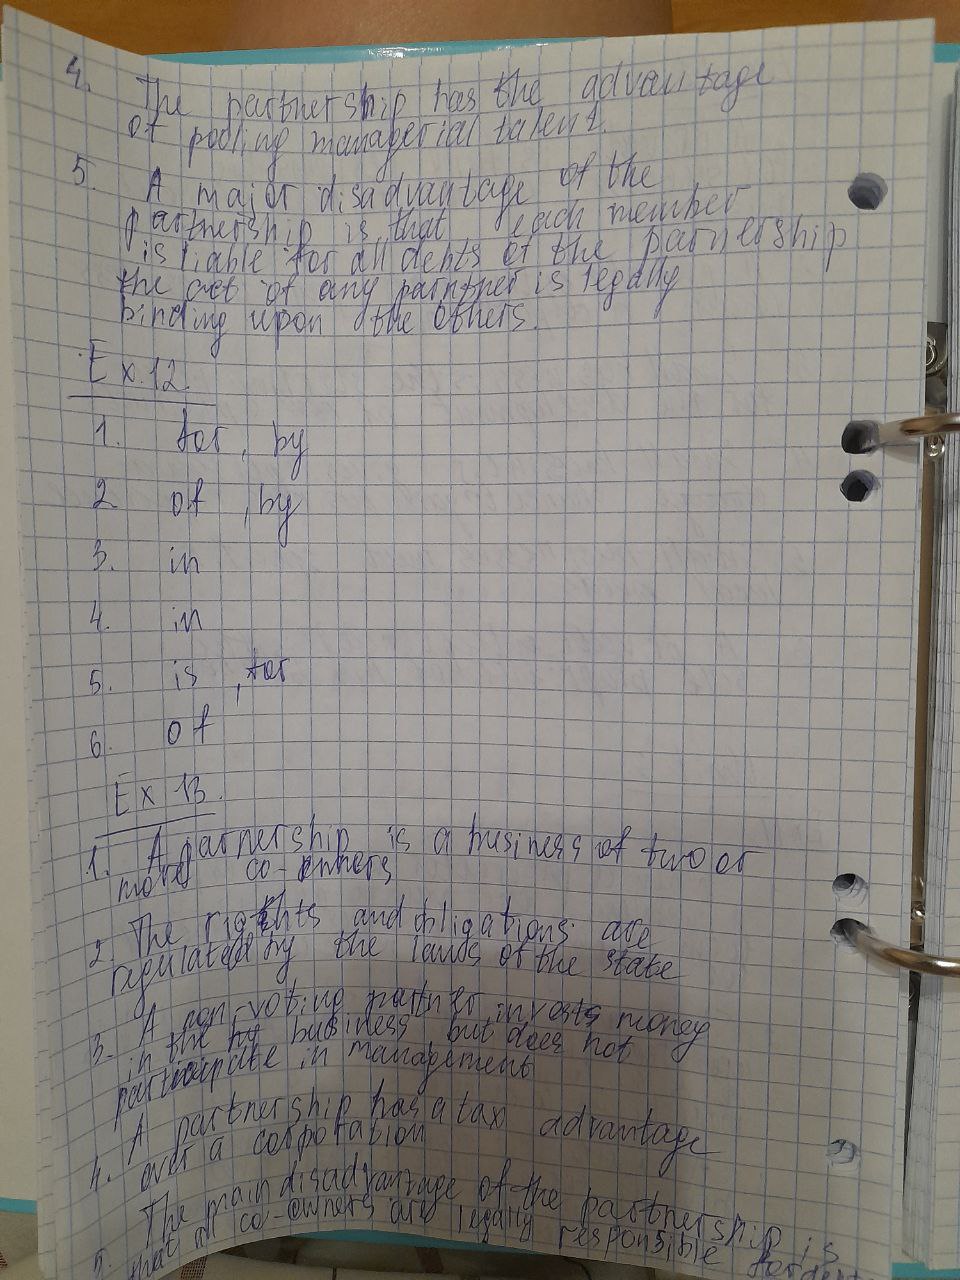 4. The partnership has the advantage
of pooling managerial talent.
5. A major disadvantage of the
partnership is that each member
is liable for all debts of the parnership
the act of any parntner is legally
binding upon the others.
Ex. 12.
1. for, by
2. of, by
3. in
4. in
5. is, for
6. of
Ex 13.
1. A parnership is a business of two or
more co-owners
2. The rights and obligations are
regulated by the laws of the state
3. A non-voting partner invests money
in the business but does not
participate in management
4. A partnership has a tax advantage
over a corporation
5. The main disadvantage of the partnership is
that all co-owners are legally responsible for